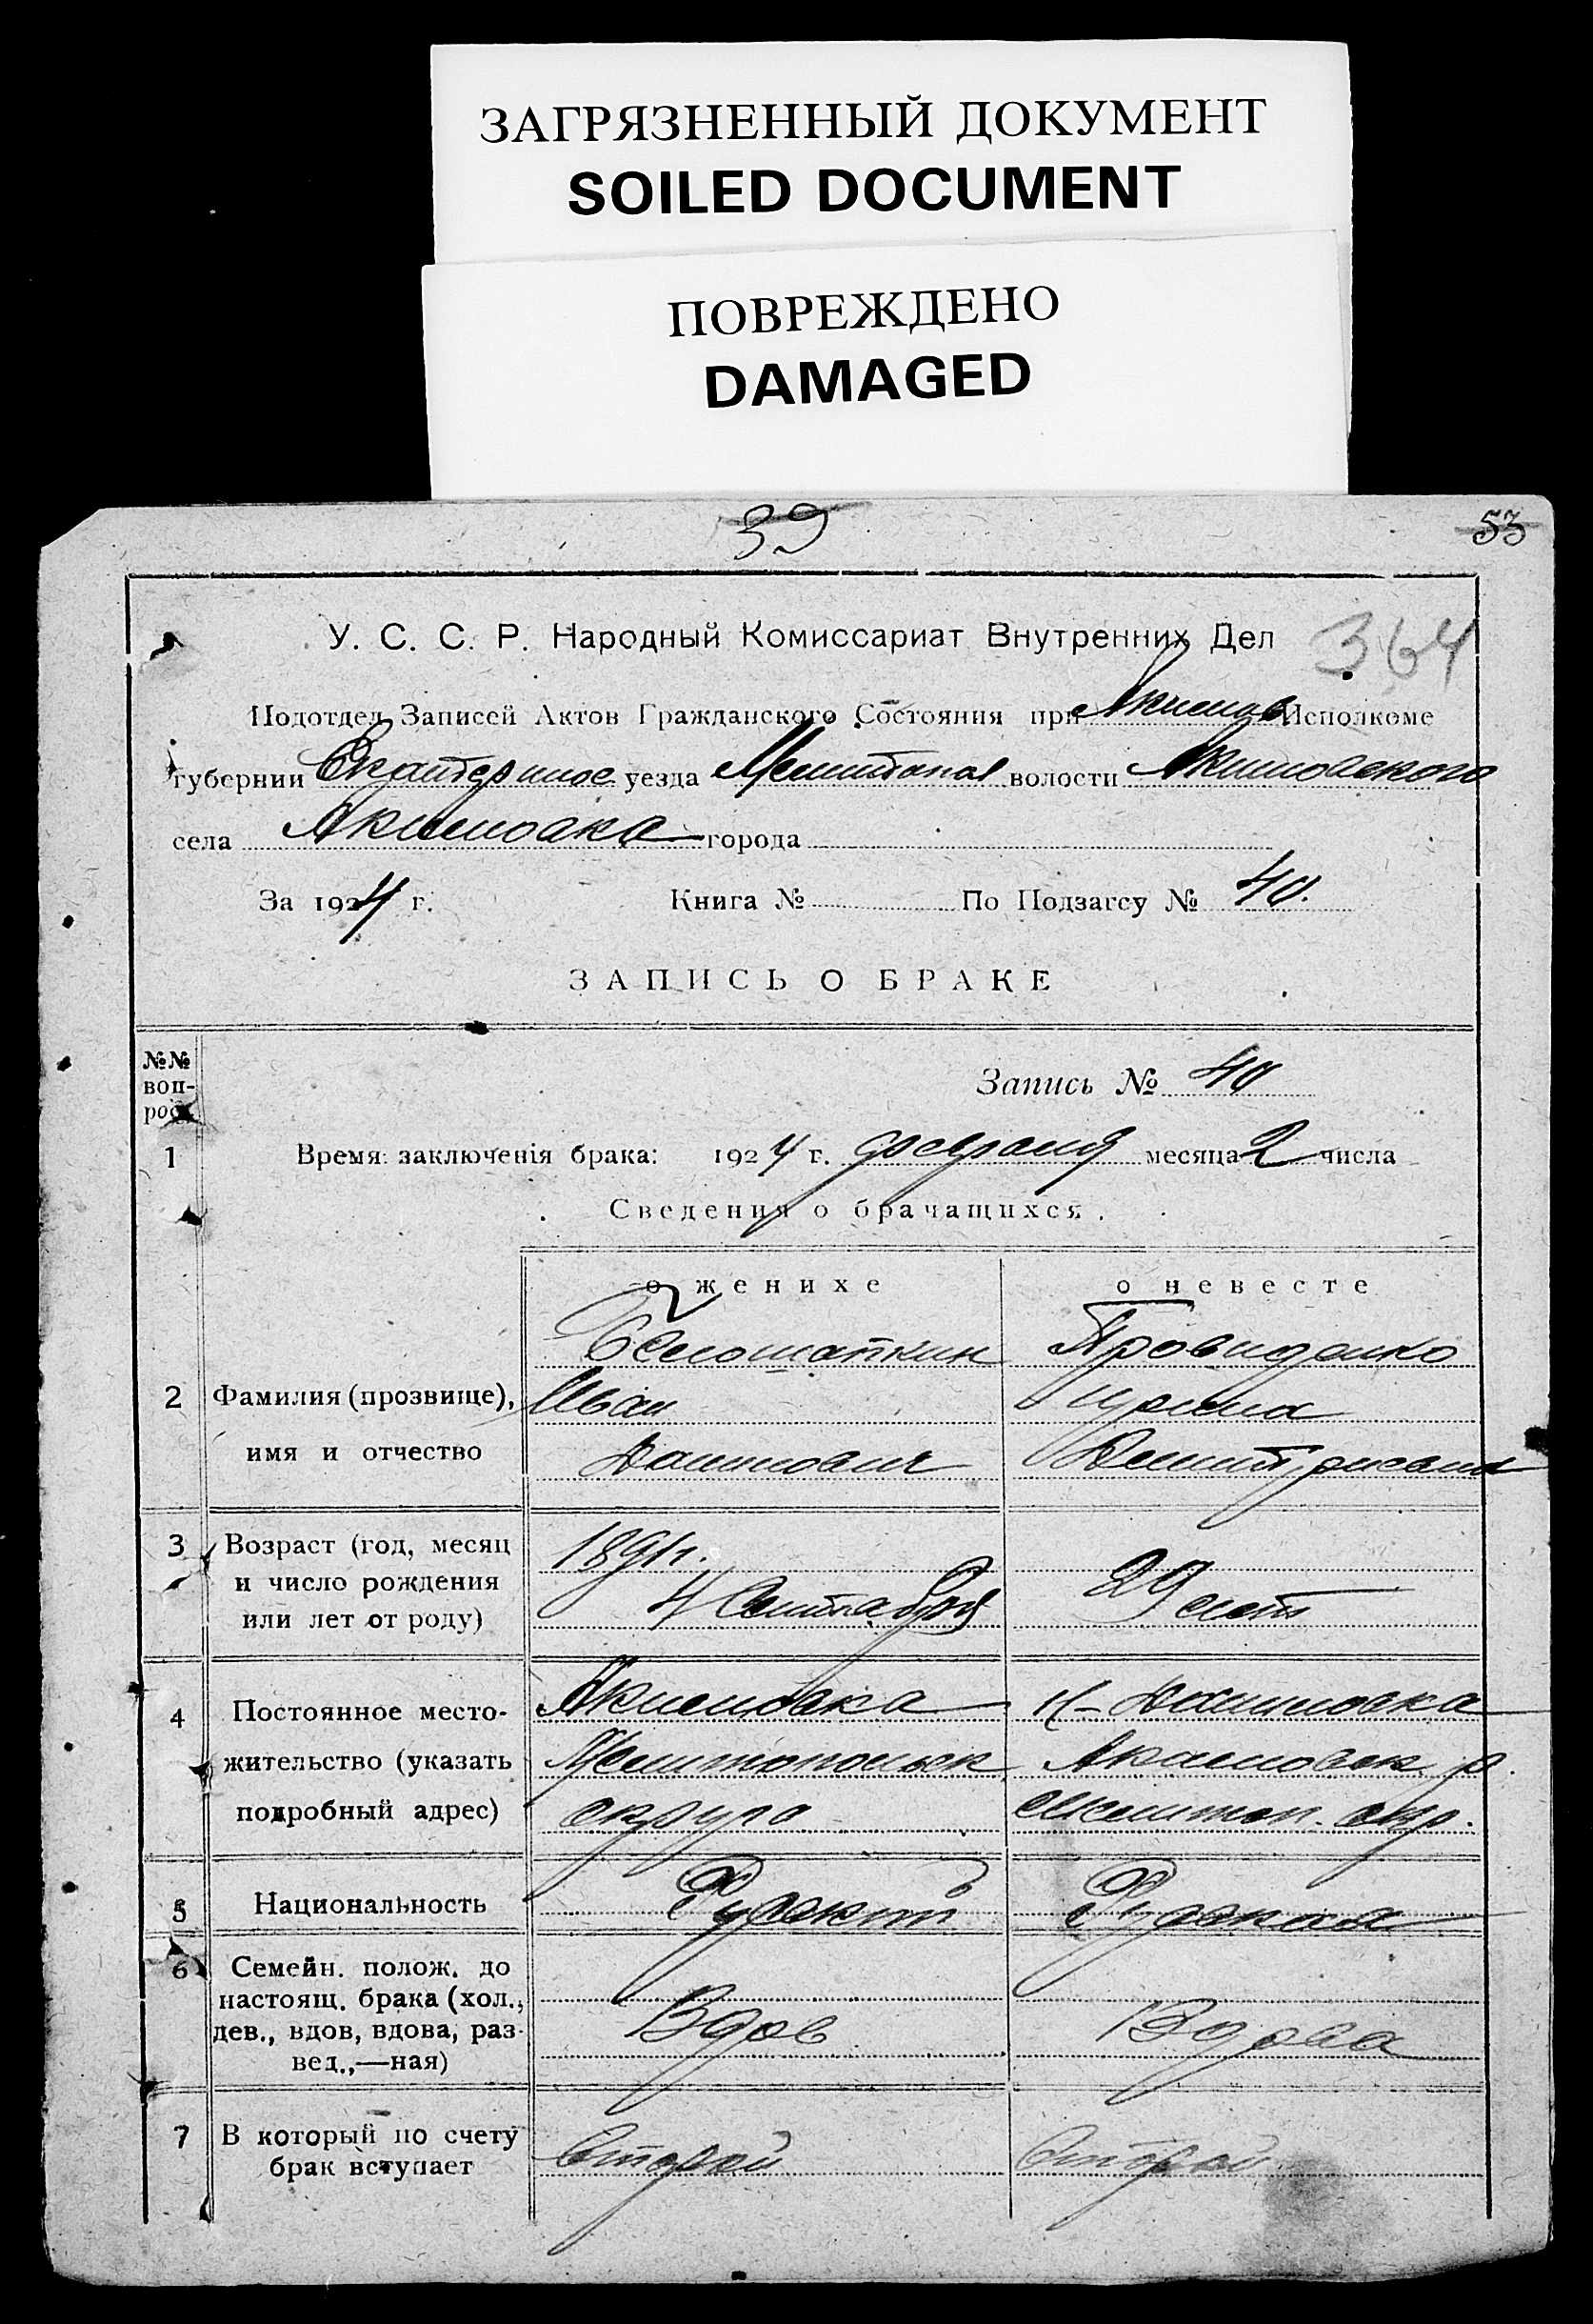 ЗАГРЯЗНЕННЫЙ ДОКУМЕНТ
SOILED DOCUMENT
ПОВРЕЖДЕНО
DAMAGED
39
53
У. С. С. Р. Народный Комиссариат Внутренних Дел 364
Подотдел Записей Актов Гражданского Состояния при Исполкоме
губернии уезда Мелитопол волости Акимовского
села Акимовка города
За 1924 г. Книга № По Подзагсу № 40.
ЗАПИСЬ О БРАКЕ
№№
воп-
рос.
Запись № 40
1 Время заключенія брака: 1924 г. февраля месяца 2 числа
Сведения о брачащихся.
о женихе о невесте
Белошапкин
2 Фамилия (прозвище), Иван Ирина
имя и отчество
3 Возраст (год, месяц 1891 г.
и число рождения 4 Сентября 29 лет
или лет от роду)
4 Постоянное место- Акимовка
жительство (указать Мелитопольск Акимовск р.
подробный адрес) округа Мелитоп. окр.
5 Национальность Русский Русская
6 Семейн. полож. до
настоящ. брака (хол.,
дев., вдов, вдова, раз- Вдов Вдова
вед.,—ная)
7 В который по счету Второй Второй
брак вступает